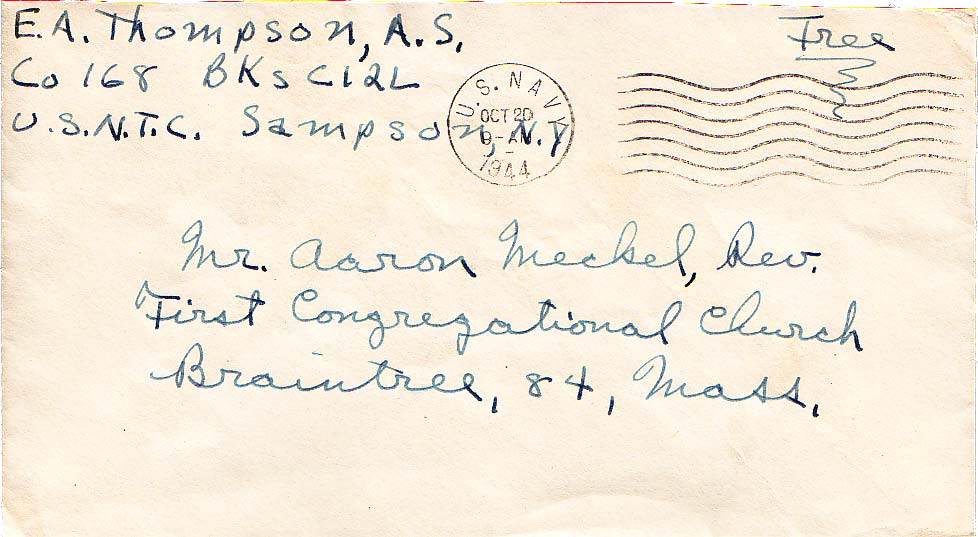 E.A. Thompson, A.S.
Co 168 BKs C12L
U.S.N.T.C. Sampson, N.Y
U.S. NAVY
OCT 20
9-AM
1944
Free
Mr. Aaron Meckel, Rev.
First Congregational Church
Braintree, 84, Mass.